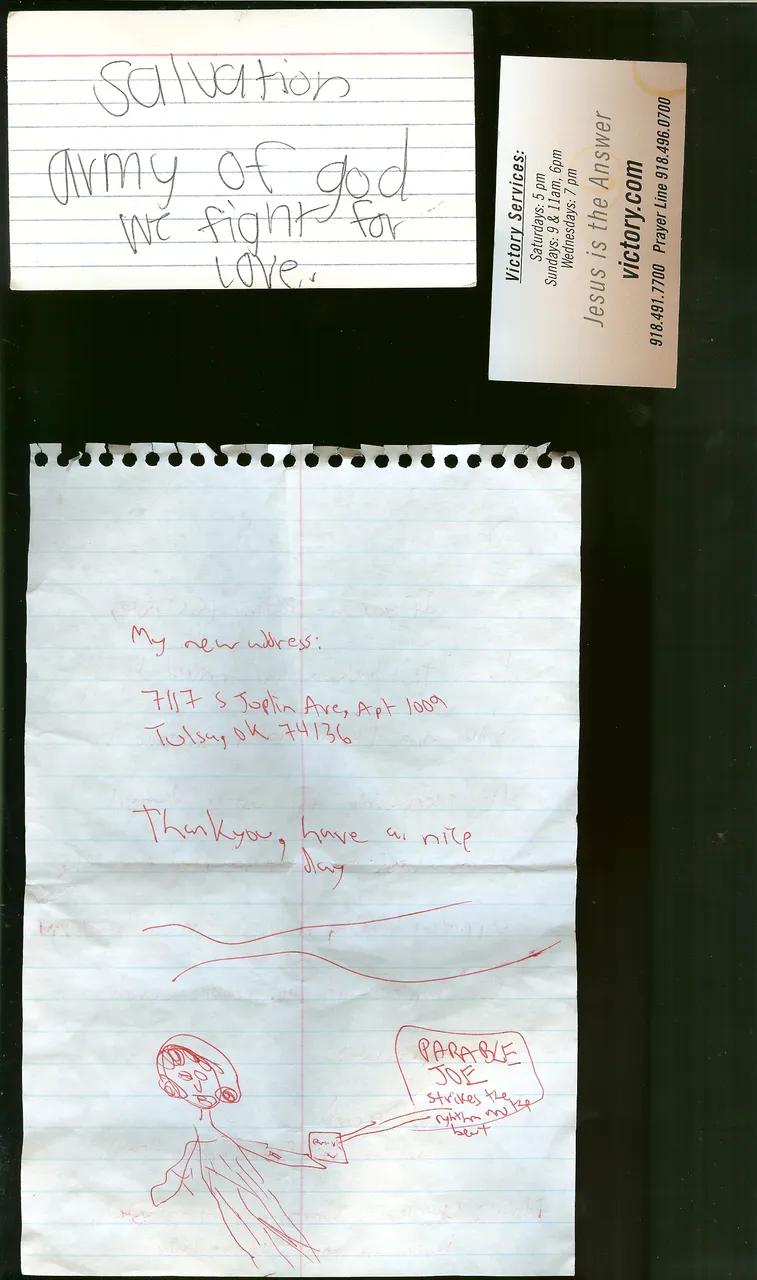 Salvation
army of god
we fight for
love.
Victory Services:
Saturdays: 5 pm
Sundays: 9 & 11am, 6pm
Wednesdays: 7 pm
Jesus is the Answer
victory.com
918.491.7700 Prayer Line 918.496.0700
My new address:
7117 S Joplin Ave, Apt 1009
Tulsa, OK 74136
Thankyou, have a nice
day
PARABLE
JOE
strikes the
rythm and the
beat